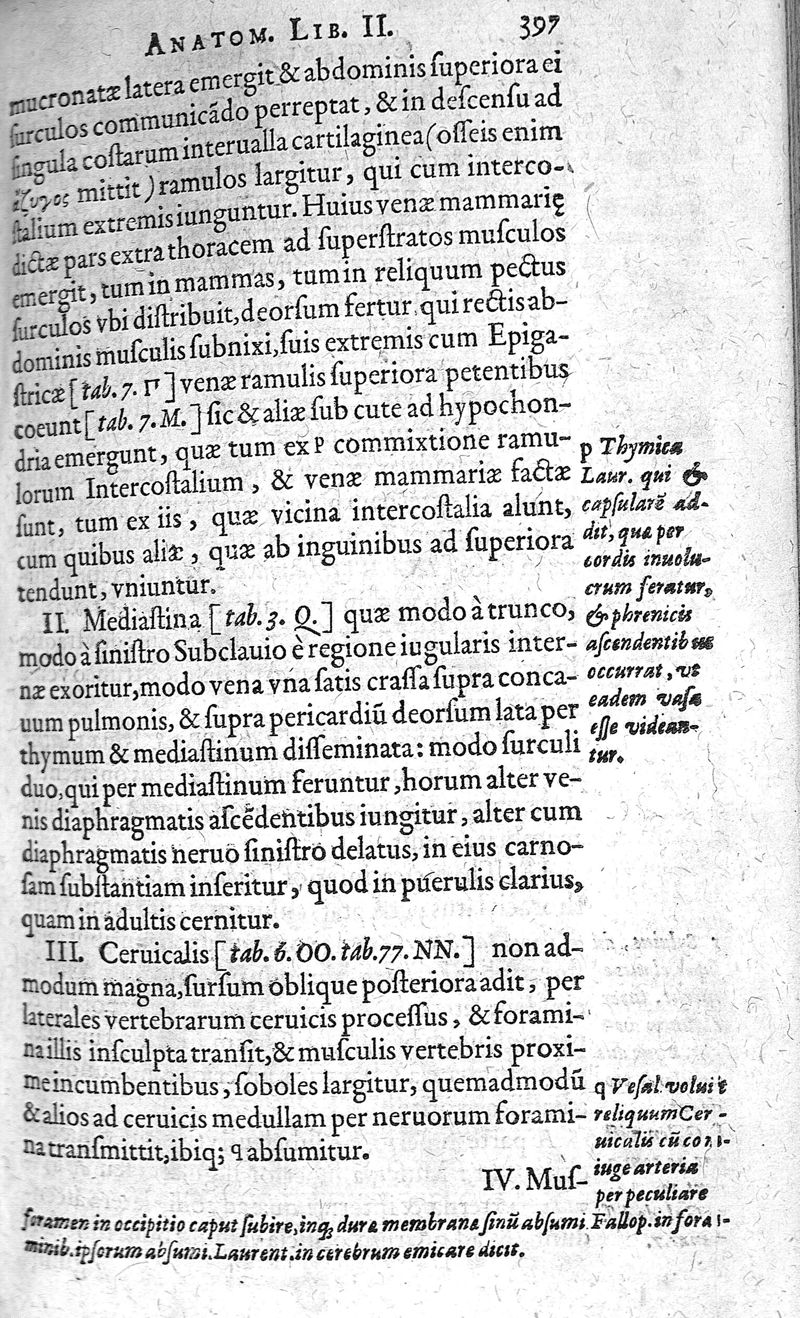 ANATOM. LIB. II. 397
mucronatæ latera emergit & abdominis ſuperiora ei
ſurculos communicãdo perreptat, & in deſcenſu ad
ſingula coſtarum interualla cartilaginea (oſſeis enim
ἄζυγος mittit) ramulos largitur, qui cum interco-
ſtalium extremis iunguntur. Huius venæ mammarię
dictæ pars extra thoracem ad ſuperſtratos muſculos
emergit, tum in mammas, tum in reliquum pectus
ſurculos vbi diſtribuit, deorſum fertur, qui rectis ab-
dominis muſculis ſubnixi, ſuis extremis cum Epiga-
ſtricæ [tab. 7. Π] venæ ramulis ſuperiora petentibus
coeunt [tab. 7. M.] ſic & aliæ ſub cute ad hypochon-
dria emergunt, quæ tum ex p commixtione ramu-
lorum Intercoſtalium, & venæ mammariæ factæ
ſunt, tum ex iis, quæ vicina intercoſtalia alunt,
cum quibus aliæ, quæ ab inguinibus ad ſuperiora
tendunt, vniuntur.
II. Mediaſtina [tab. 3. Q.] quæ modo à trunco,
modo à ſiniſtro Subclauio è regione iugularis inter-
næ exoritur, modo vena vna ſatis craſſa ſupra conca-
uum pulmonis, & ſupra pericardiũ deorſum lata per
thymum & mediaſtinum diſſeminata: modo ſurculi
duo, qui per mediaſtinum feruntur, horum alter ve-
nis diaphragmatis aſcẽdentibus iungitur, alter cum
diaphragmatis neruo ſiniſtro delatus, in eius carno-
ſam ſubſtantiam inſeritur, quod in puerulis clarius,
quam in adultis cernitur.
III. Ceruicalis [tab. 6. OO. tab. 77. NN.] non ad-
modum magna, ſurſum oblique poſteriora adit, per
laterales vertebrarum ceruicis proceſſus, & forami-
na illis inſculpta tranſit, & muſculis vertebris proxi-
me incumbentibus, ſoboles largitur, quemadmodũ
& alios ad ceruicis medullam per neruorum forami-
na tranſmittit, ibiq; q abſumitur.
IV. Muſ-
p Thymica
Laur. qui &
capſularẽ ad-
dit, quæ per
cordis inuolu-
crum feratur,
& phrenicis
aſcendentibus
occurrat, vt
eadem vaſa
eſſe videan-
tur.
q Veſal. voluit
reliquum Cer-
uicalis cũ con-
iuge arteria
per peculiare
foramen in occipitio caput ſubire, inq; duræ membranæ ſinũ abſumi. Fallop. in fora-
minib. ipſorum abſumi. Laurent. in cerebrum emicare dicit.